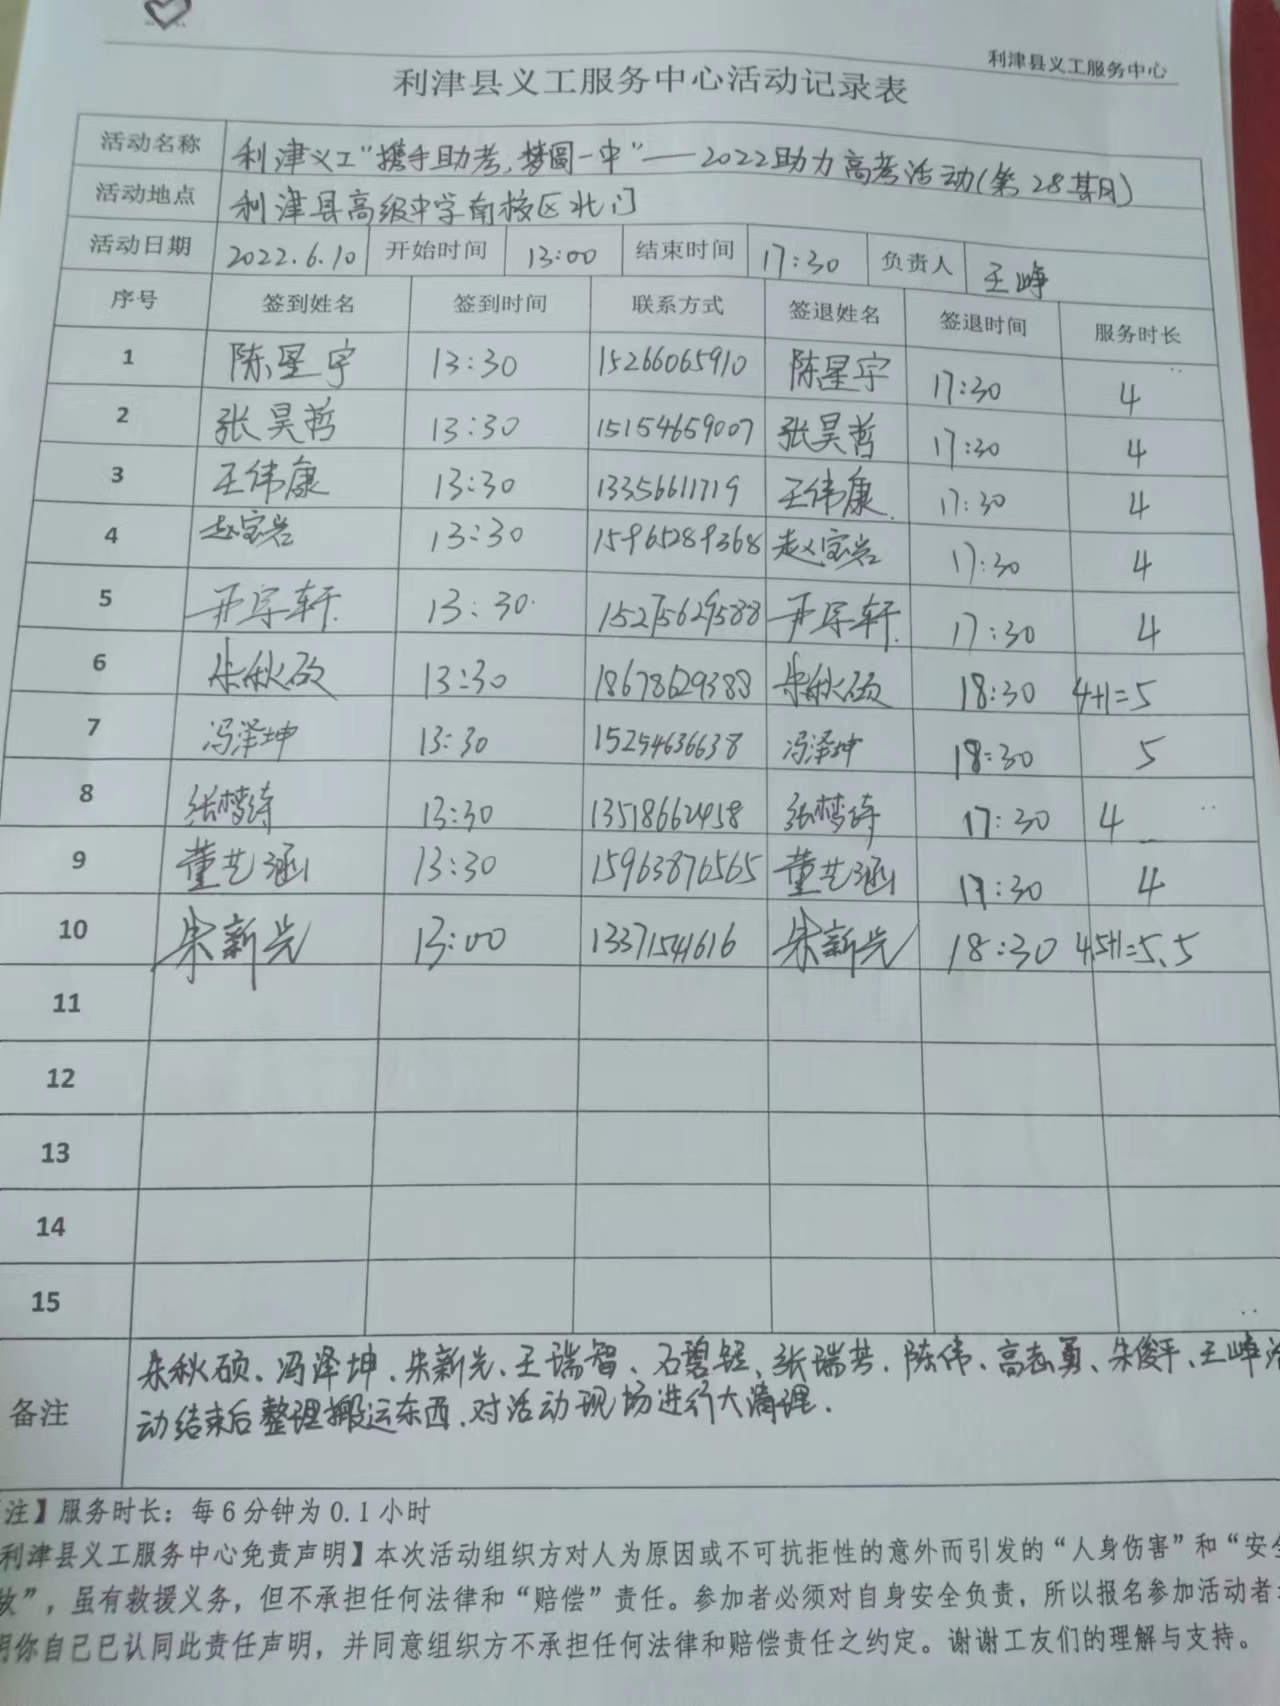 利津县义工服务中心
利津县义工服务中心活动记录表
活动名称 利津义工“携手助考,梦圆一中”——2022助力高考活动(第28期)
活动地点 利津县高级中学南校区北门
活动日期 2022.6.10 开始时间 13:00 结束时间 17:30 负责人 王峥
序号 签到姓名 签到时间 联系方式 签退姓名 签退时间 服务时长
1 陈星宇 13:30 15266065910 陈星宇 17:30 4
2 张昊哲 13:30 15154659007 张昊哲 17:30 4
3 王伟康 13:30 13356611719 王伟康 17:30 4
4 赵宝岩 13:30 15965289368 赵宝岩 17:30 4
5 宇轩 13:30 15275629588 宇轩 17:30 4
6 朱秋硕 13:30 18678629388 朱秋硕 18:30 4+1=5
7 冯泽坤 13:30 15254636638 冯泽坤 18:30 5
8 张梦涛 13:30 13518662458 张梦涛 17:30 4
9 董艺涵 13:30 15963876565 董艺涵 17:30 4
10 宋新光 13:00 13371541616 宋新光 18:30 4.5+1=5.5
11
12
13
14
15
备注 朱秋硕、冯泽坤、宋新光、王瑞智、石碧、张瑞芳、陈伟、高志勇、朱俊平、王峥活
动结束后整理搬运东西,对活动现场进行大清理.
注】服务时长：每6分钟为0.1小时
利津县义工服务中心免责声明】本次活动组织方对人为原因或不可抗拒性的意外而引发的“人身伤害”和“安全
故”，虽有救援义务，但不承担任何法律和“赔偿”责任。参加者必须对自身安全负责，所以报名参加活动者
明你自己已认同此责任声明，并同意组织方不承担任何法律和赔偿责任之约定。谢谢工友们的理解与支持。